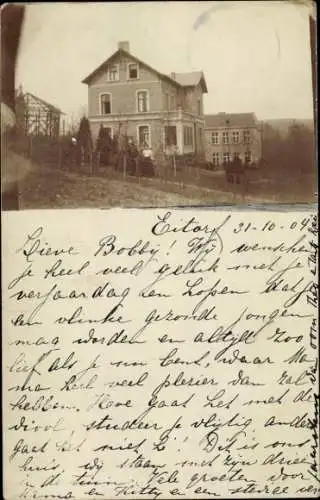 Eitorf 31-10-04
Lieve Bobby! Wij wenschen
je heel veel geluk met je
verjaardag en hopen dat je
een flinke gezonde jongen
mag worden en altijd zoo
lief als je nu bent, waar Ma-
ma heel veel plezier van zal
hebben. Hoe gaat het met de
viool, studeer je vlijtig, anders
gaat het niet h! Dit is ons
huis, wij staan met z'n drieën
in de tuin. Vele groeten voor
en Kitty en een stevige